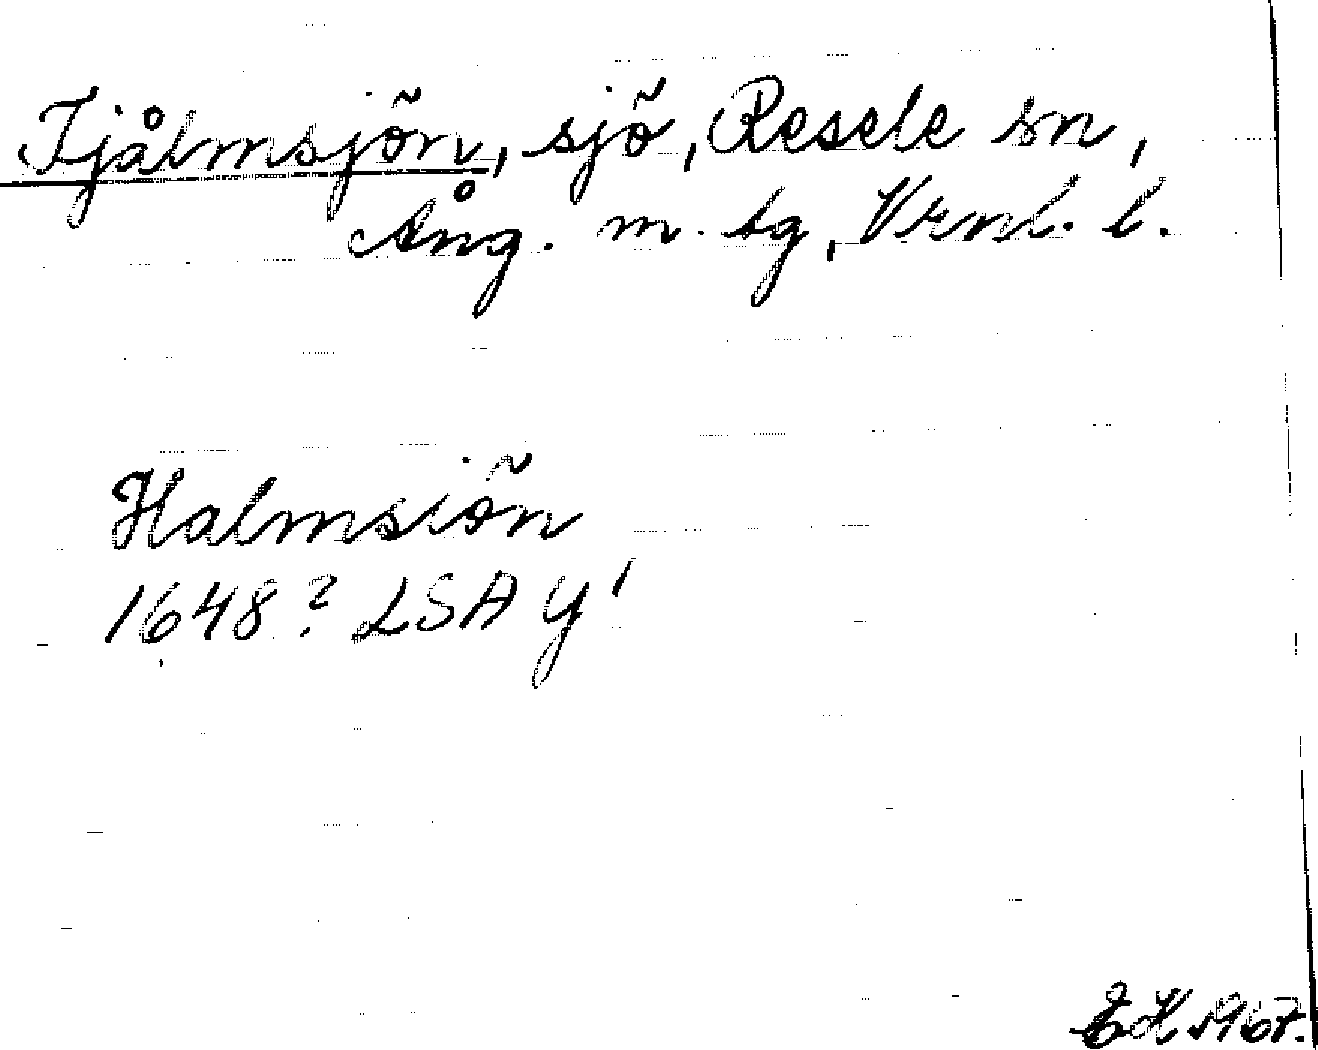 Tjålmsjön, sjö, Resele sn,
Ång. m. tg, Vrnl. l.
Halmsiön
1648? LSA Y1
EH 1967.